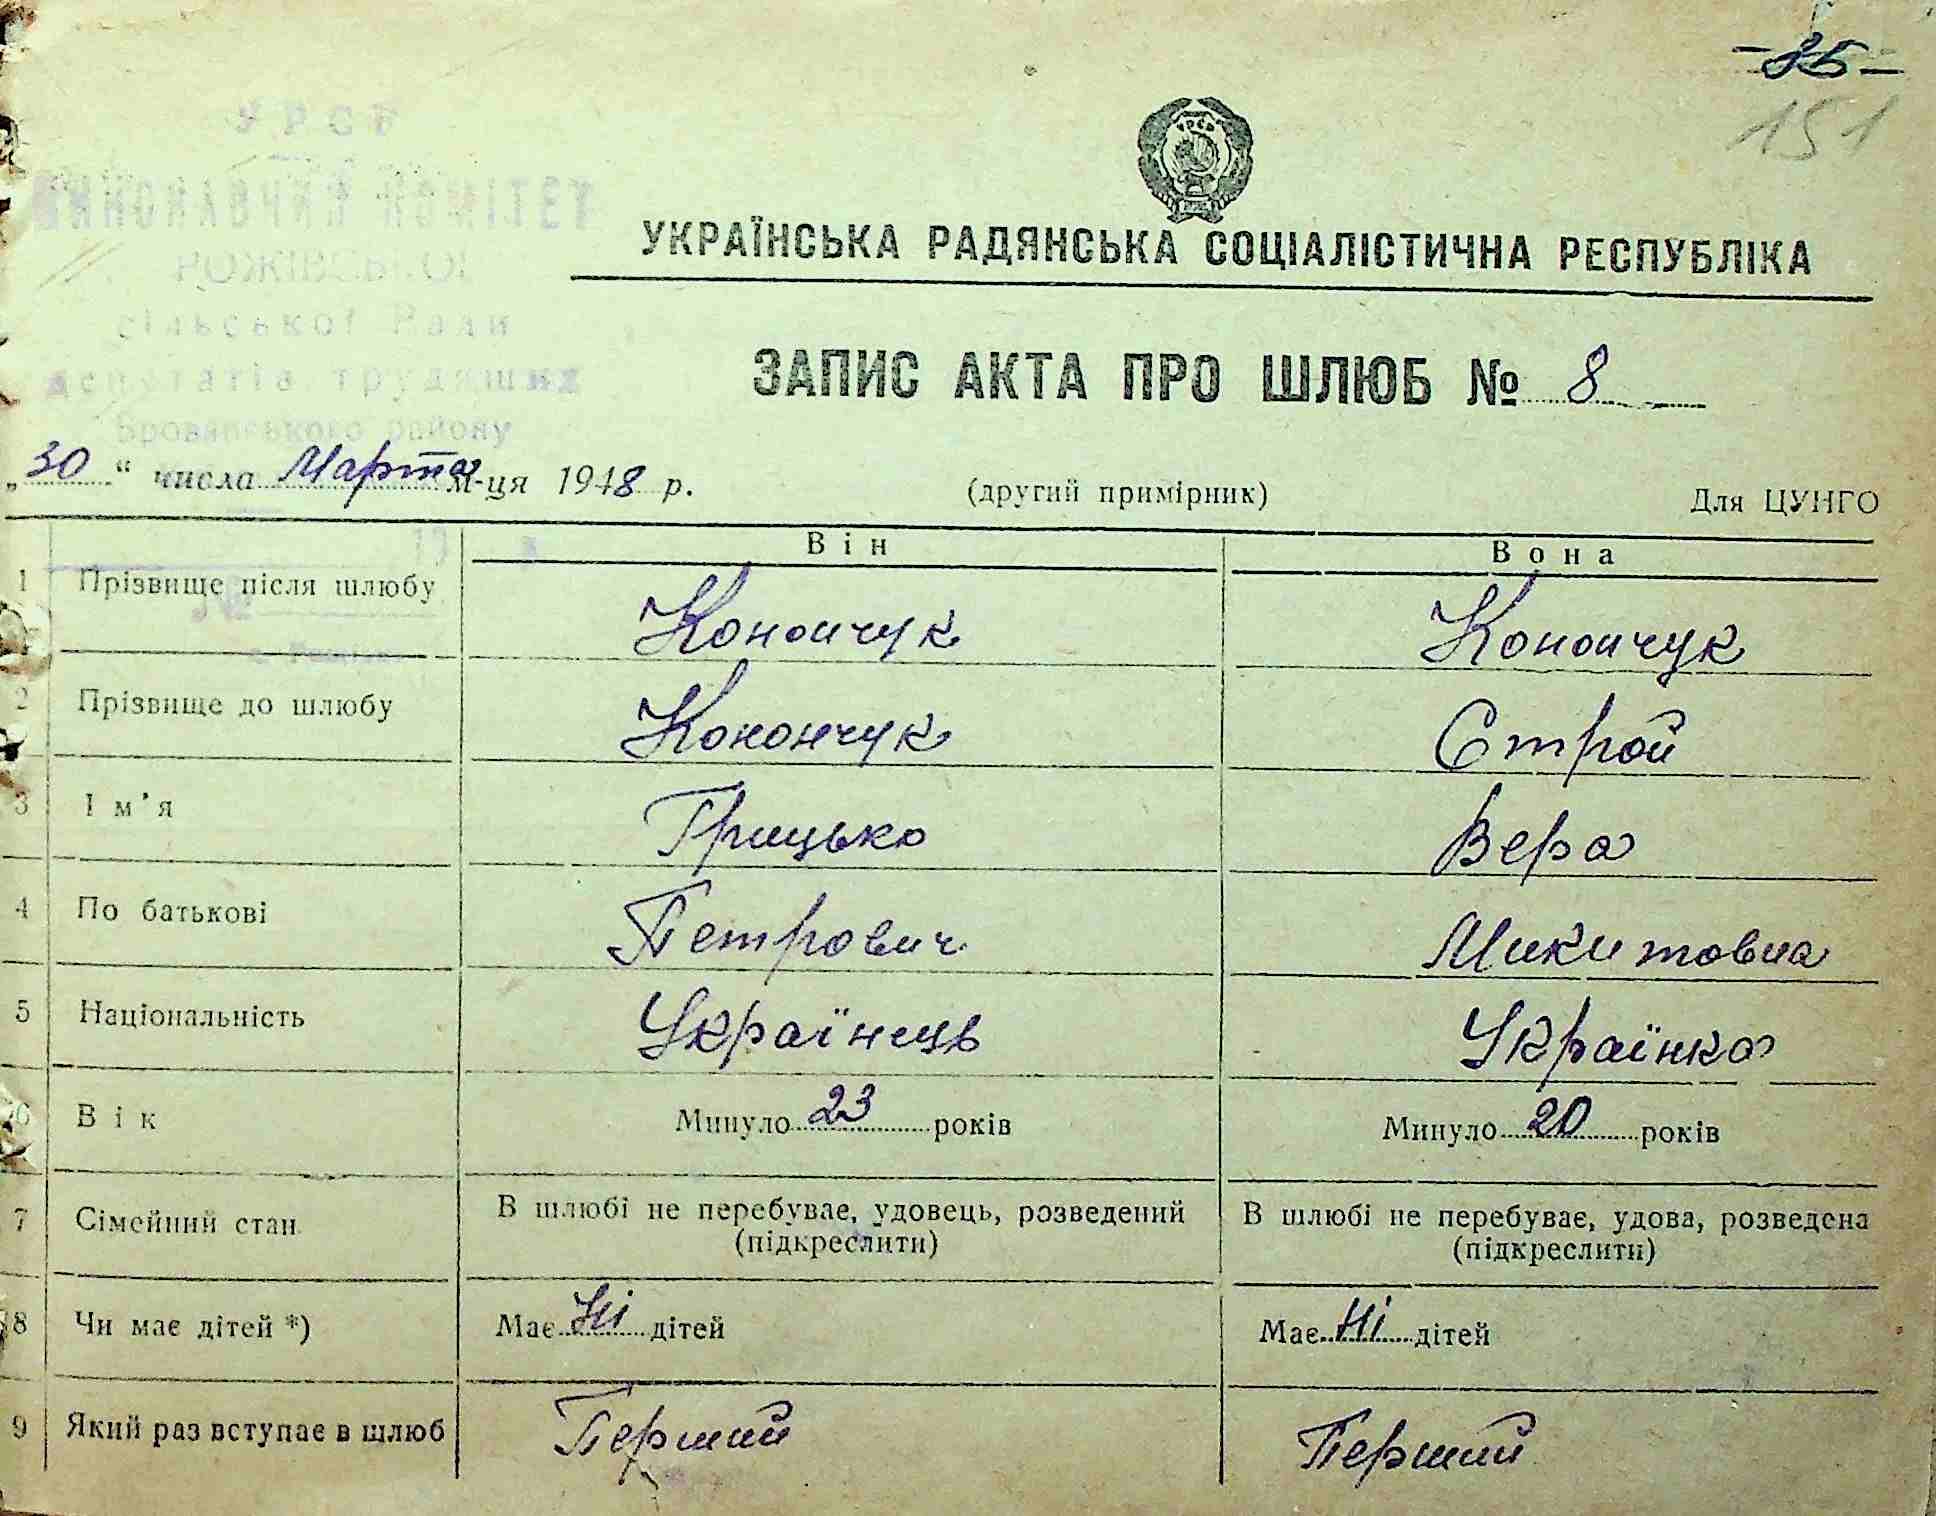 -35-
151
УРСР
ВИКОНАВЧИЙ КОМІТЕТ
РОЖІВСЬКОЇ
сільської Ради
депутатів трудящих
Броварського району
УКРАЇНСЬКА РАДЯНСЬКА СОЦІАЛІСТИЧНА РЕСПУБЛІКА
ЗАПИС АКТА ПРО ШЛЮБ № 8
„30“ числа Марта м-ця 1948 р. (другий примірник) Для ЦУНГО
19 р
№
Він Вона
1 Прізвище після шлюбу Конончук Конончук
2 Прізвище до шлюбу Конончук Строй
3 Ім’я Грицько Вера
4 По батькові Петрович Микитовна
5 Національність Українець Українка
6 Вік Минуло 23 років Минуло 20 років
7 Сімейний стан В шлюбі не перебуває, удовець, розведений В шлюбі не перебуває, удова, розведена
(підкреслити) (підкреслити)
8 Чи має дітей *) Має Ні дітей Має Ні дітей
9 Який раз вступає в шлюб Перший Перший